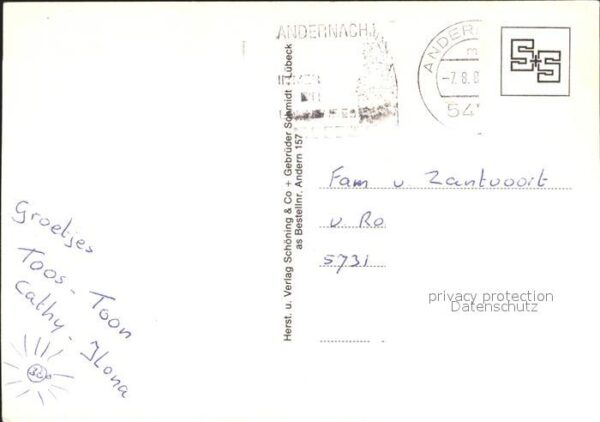 ANDERNACH
IMMER
ANDER
-7.8.8
54
S+S
Groetjes
Toos - Toon
Cathy - Ilona
30°
Herst. u. Verlag Schöning & Co + Gebrüder Schmidt - Lübeck
as Bestellnr. Andern 157
Fam v Zantvoort
v Ro
5731
privacy protection
Datenschutz